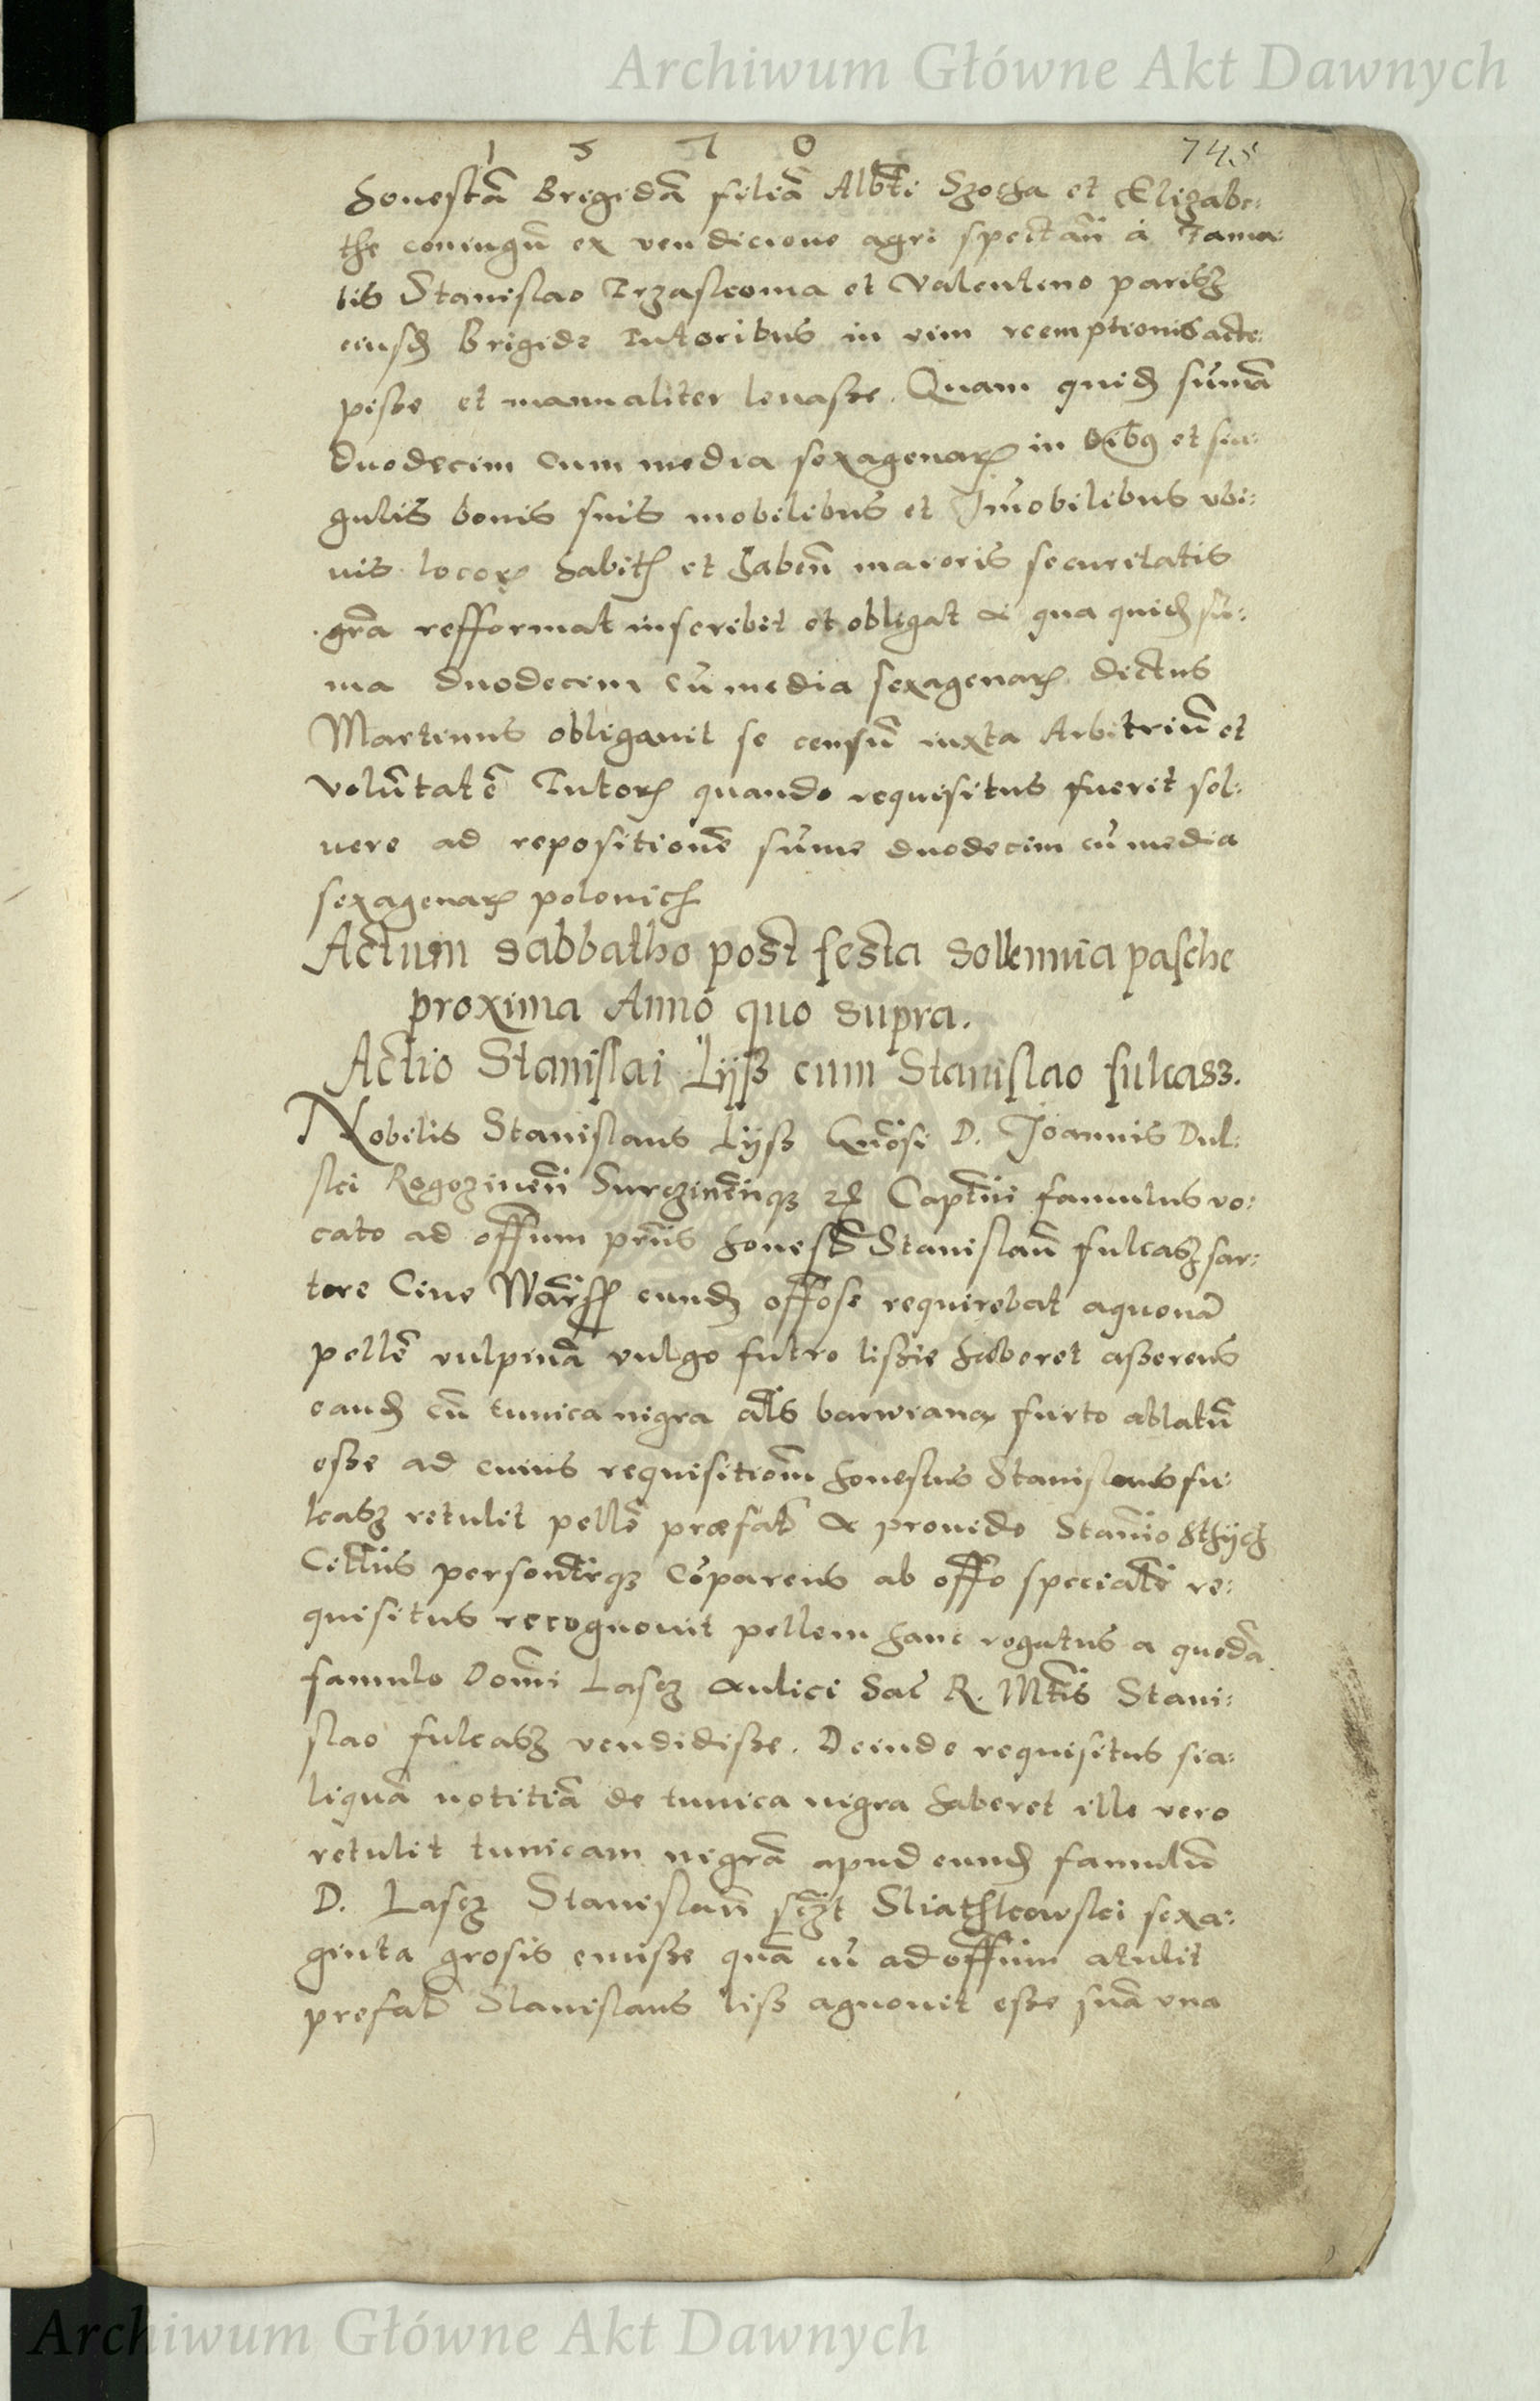 Archiwum Główne Akt Dawnych
1 5 7 0 745
honestā Brigidā filiā Albti Szocha et Elizabe:
the coniugū ex vendicione agri spectan̄ a Fama:
tis Stanislao Trzaskoma et Valentino parisz
eiusdꝫ Brigide Tutoribus in vim reemptionis acce:
pisse et manualiter leuasse. Quam quidꝫ sūmā
duodecim cum media sexagenarꝫ in oibꝰ et sin:
gulis bonis suis mobilibus et Im̄obilibus vbi:
uis locorꝫ habitꝫ et haben̄ maioris securitatis
grā refformat inscribit et obligat & qua quidꝫ sū:
ma duodecim cū media sexagenarꝫ dictus
Martinus obligauit se censū iuxta Arbitriū et
volūtatē Tutorꝫ quando requisitus fuerit sol:
uere ad repositionē sūme duodecim cū media
sexagenarꝫ polonicꝫ
Actum sabbatho post festa sollennia pasche
proxima Anno quo supra.
Actio Stanislai Lijss cum Stanislao fulcasz.
Nobilis Stanislaus Lijss Gnōsi D. Joannis Dul:
ski Rogozinen̄ Surazinen̄qꝫ Captn̄i famulus vo:
cato ad offium prn̄s honestū Stanislaū fulcasz sar:
tore Ciue Warss eundꝫ offose requirebat aquonā
pellē vulpinā vulgo futro lissie haberet asserens
eandꝫ cū tunica nigra als barwiana furto ablatū
esse ad cuius requisitiom̄ honestus Stanislaus fu:
lcasz retulit pellē præfatā & prouido Stan̄io
personlrqꝫ Cōparens ab offo specialr re:
quisitus recognouit pellem hanc rogatus a quodā
famulo Domi Lascz aulici Sac R. Mtis Stani:
slao fulcasz vendidisse. Deinde requisitus si a:
liquā notitiā de tunica nigra haberet ille vero
retulit tunicam nigrā apud eundꝫ famulū
D. Lascz Stanislaū sczt Sliathkowski sexa:
ginta grosis emisse quā cū ad offium atulit
prefatꝰ Stanislaus liss agnouit esse suā vna
Archiwum Główne Akt Dawnych